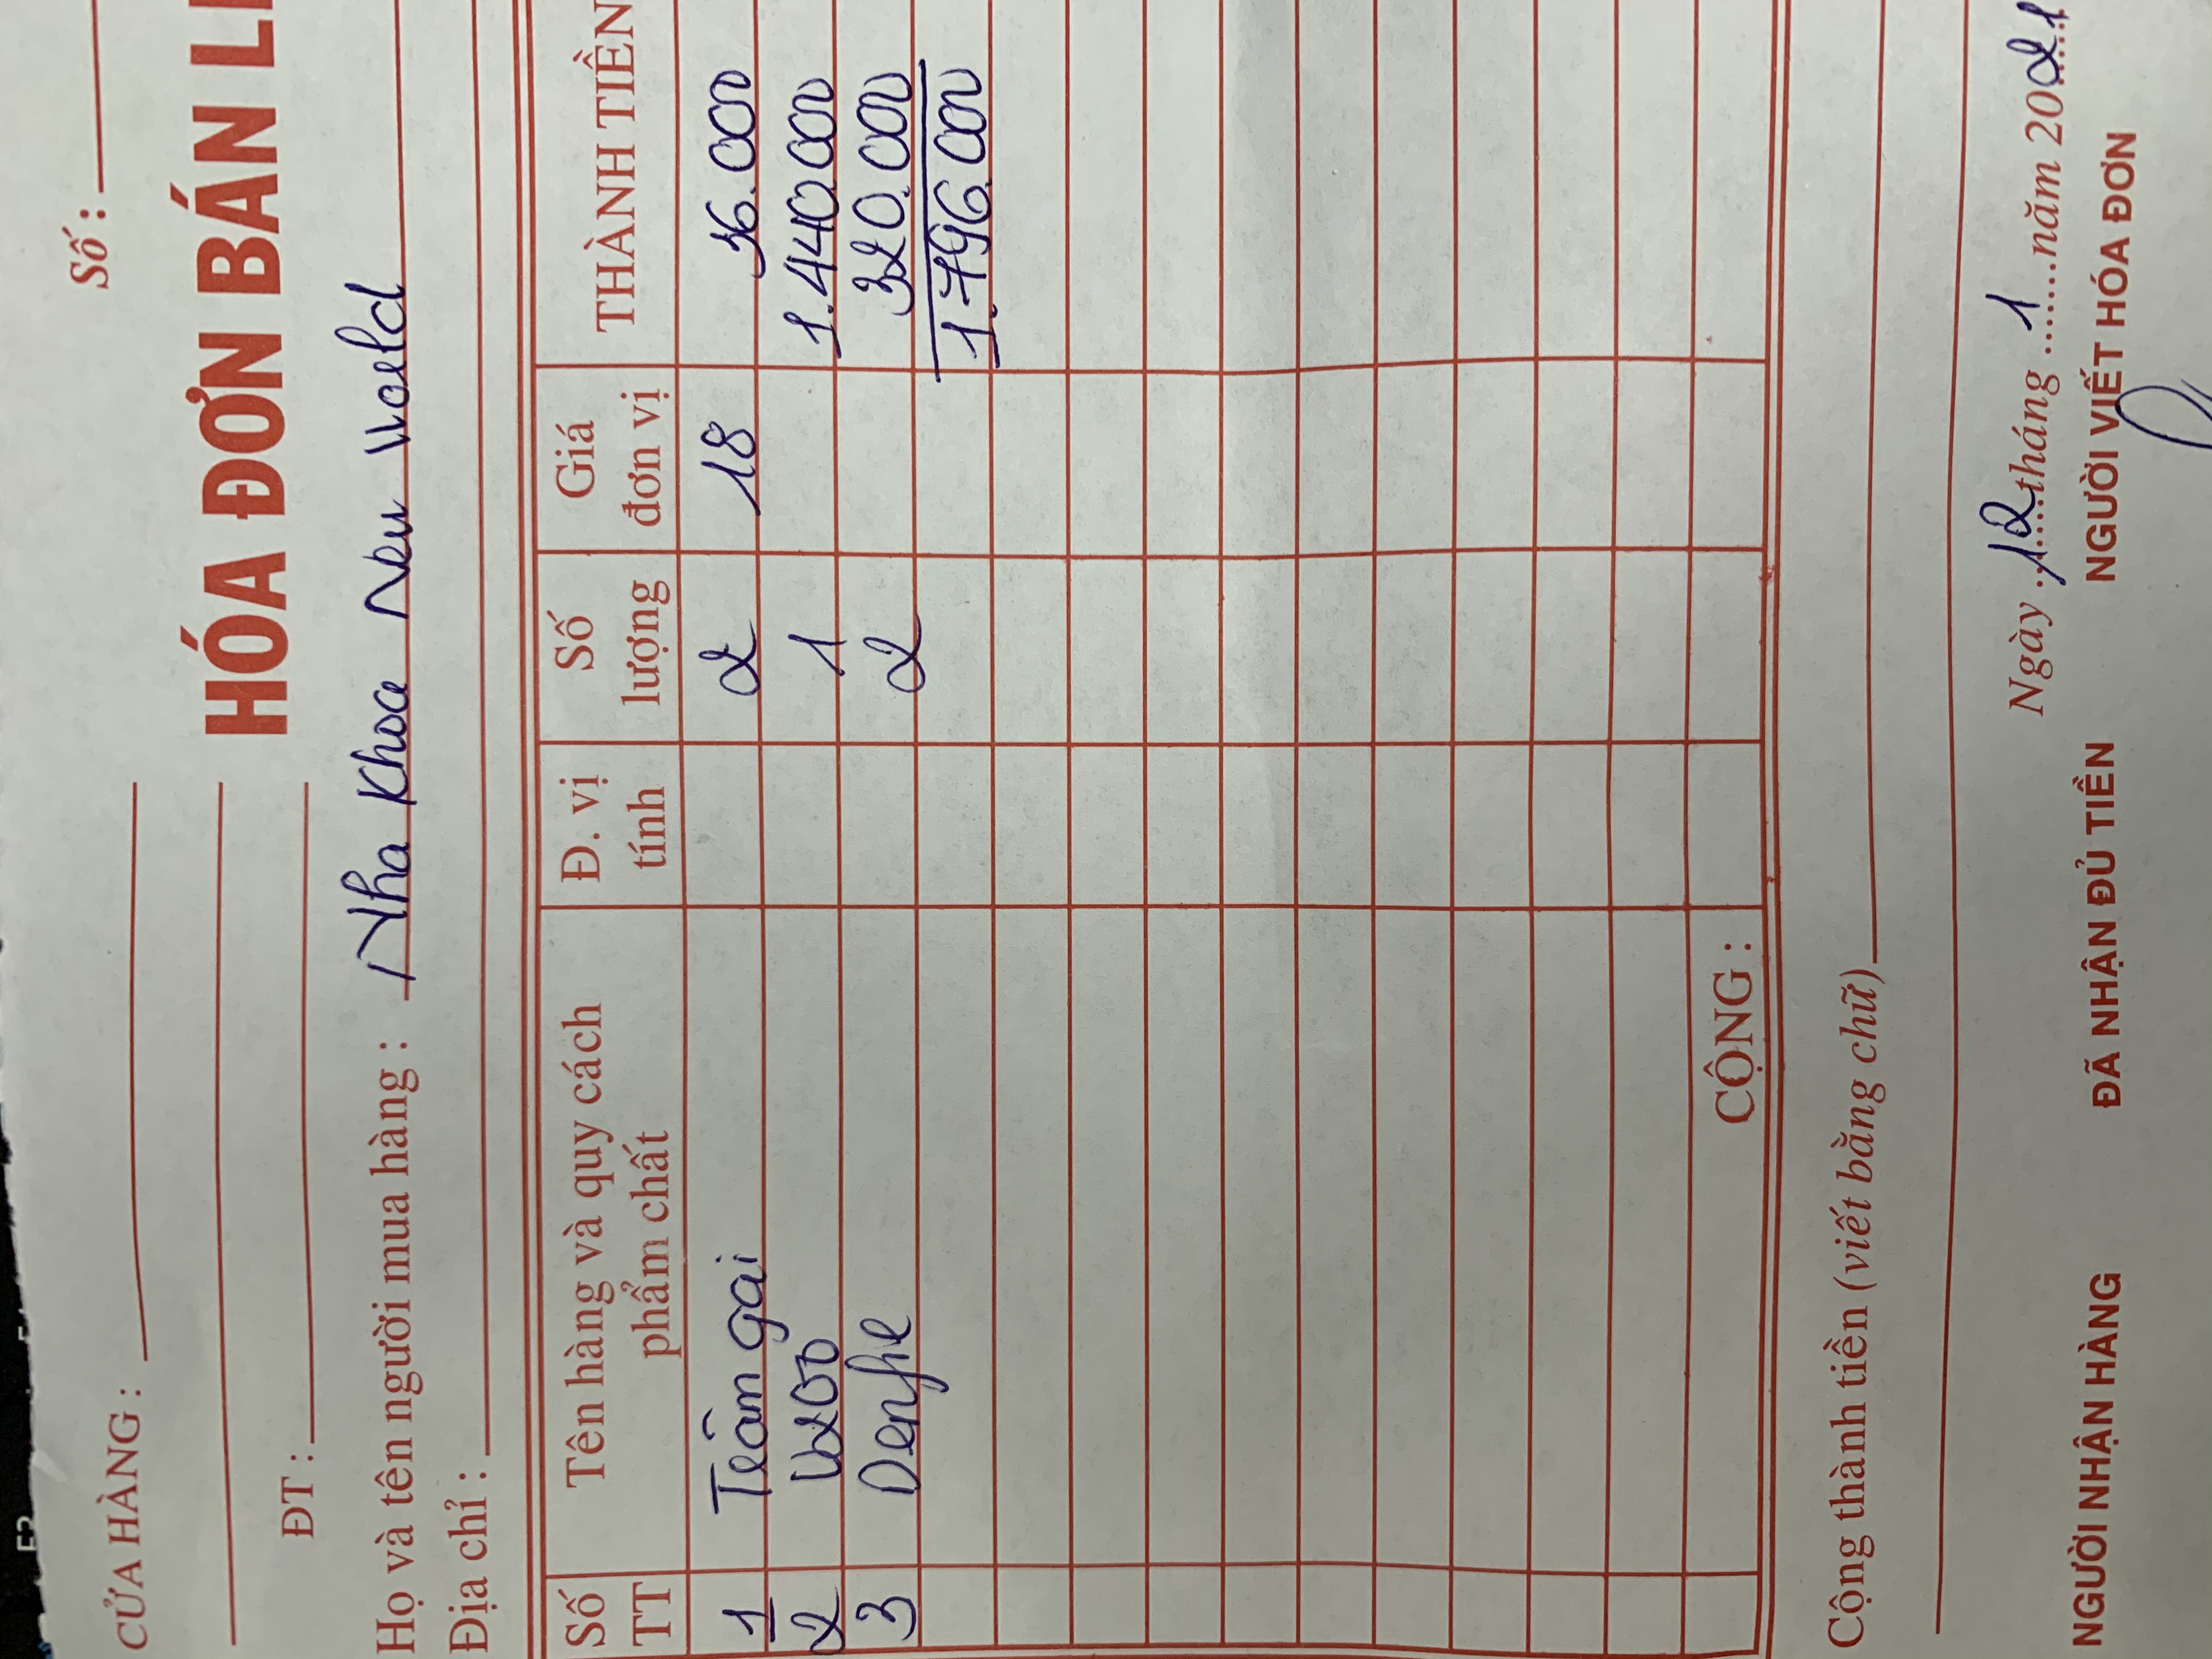 F3
Số :
CỬA HÀNG :
HÓA ĐƠN BÁN L
ĐT :
Họ và tên người mua hàng : Nha Khoa New World
Địa chỉ :
Số TT Tên hàng và quy cách phẩm chất Đ. vị tính Số lượng Giá đơn vị THÀNH TIỀN
1 Trâm gai 2 18 36.000
2 V200 1 1.440.000
3 Denfil 2 320.000
1.796.000
CỘNG :
Cộng thành tiền (viết bằng chữ)
Ngày 12 tháng 1 năm 2021
NGƯỜI NHẬN HÀNG ĐÃ NHẬN ĐỦ TIỀN NGƯỜI VIẾT HÓA ĐƠN